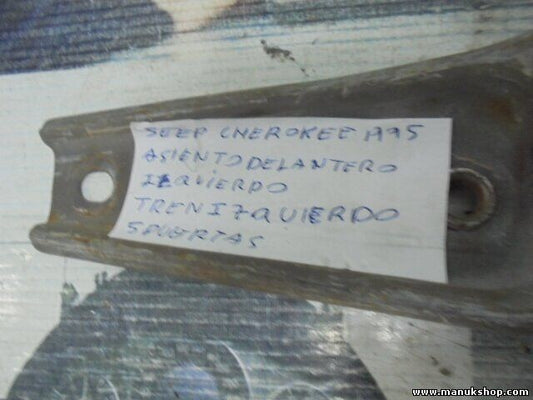 SEEP CHEROKEE 1995
ASIENTO DELANTERO
IZQUIERDO
TREN IZQUIERDO
5 PUERTAS
www.manukshop.com